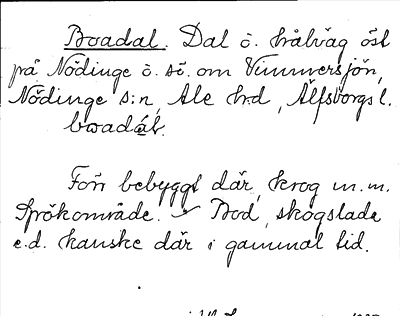 Boadal. Dal o. hålväg öst
på Nödinge ö. sö. om Vimmersjön,
Nödinge s:n, Ale hrd, Älfsborgs l.
boadál.
Förr bebyggt där, krog m.m.
Spökområde. Bod, skogslada
e.d. kanske där i gammal tid.